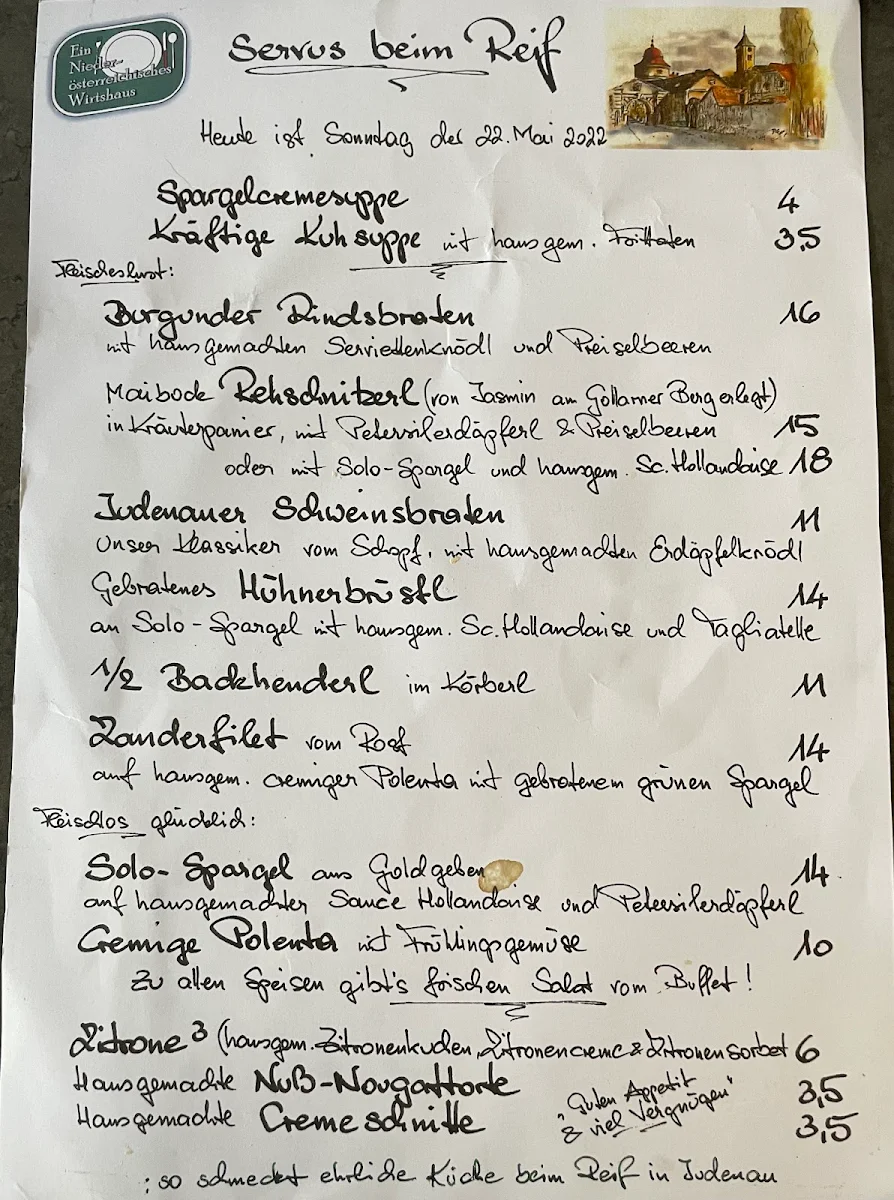 Ein
Nieder-
österreichisches
Wirtshaus
Servus beim Reif
Heute ist Sonntag der 22. Mai 2022
Spargelcremesuppe 4
Kräftige Kuhsuppe mit hausgem. Frittaten 3,5
Fleischeslust:
Burgunder Rindsbraten 16
mit hausgemachten Serviettenknödl und Preiselbeeren
Maibock Rehschnitzerl (von Jasmin am Gollarner Berg erlegt)
in Kräuterpanier, mit Petersilerdäpferl & Preiselbeeren 15
oder mit Solo-Spargel und hausgem. Sc. Hollandaise 18
Judenauer Schweinsbraten 11
Unser Klassiker vom Schopf, mit hausgemachten Erdäpfelknödl
Gebratenes Hühnerbrüstl 14
an Solo-Spargel mit hausgem. Sc. Hollandaise und Tagliatelle
1/2 Backhenderl im Körberl 11
Zanderfilet vom Rost 14
auf hausgem. cremiger Polenta mit gebratenem grünen Spargel
Fleischlos glücklich:
Solo-Spargel aus Goldgeben 14
auf hausgemachter Sauce Hollandaise und Petersilerdäpferl
Cremige Polenta mit Frühlingsgemüse 10
Zu allen Speisen gibt's frischen Salat vom Buffet!
Zitrone³ (hausgem. Zitronenkuchen, Zitronencreme & Zitronensorbet 6
Hausgemachte Nuß-Nougattorte 3,5
Hausgemachte Cremeschnitte 3,5
"Guten Appetit
& viel Vergnügen"
: so schmeckt ehrliche Küche beim Reif in Judenau